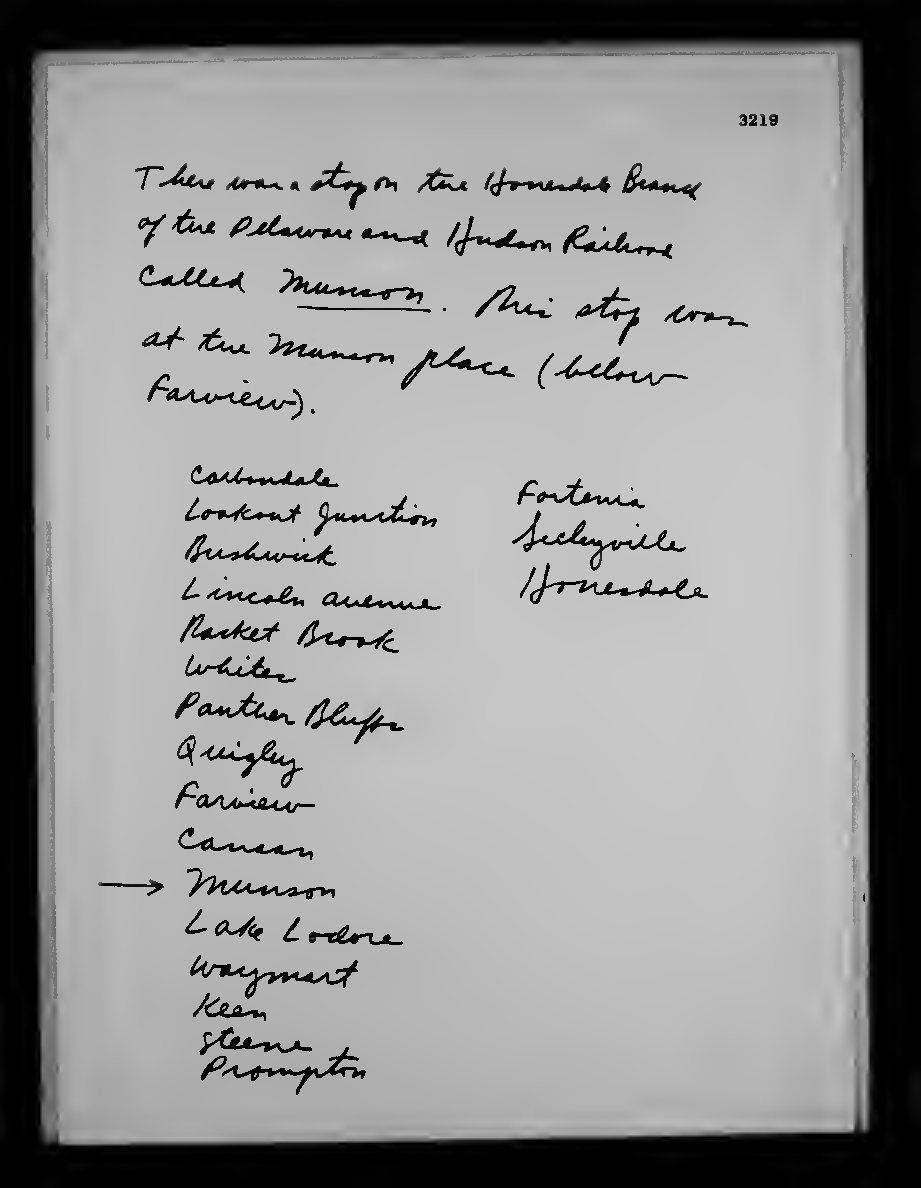 3219
There was a stop on the Honesdale Branch
of the Delaware and Hudson Railroad
called Munson. This stop was
at the Munson place (below
Farview).
Carbondale
Lookout Junction
Bushwick
Lincoln avenue
Racket Brook
Whites
Panther Bluffs
Quigley
Farview
Canaan
→ Munson
Lake Lodore
Waymart
Keen
Steene
Prompton
Fortenia
Seelyville
Honesdale